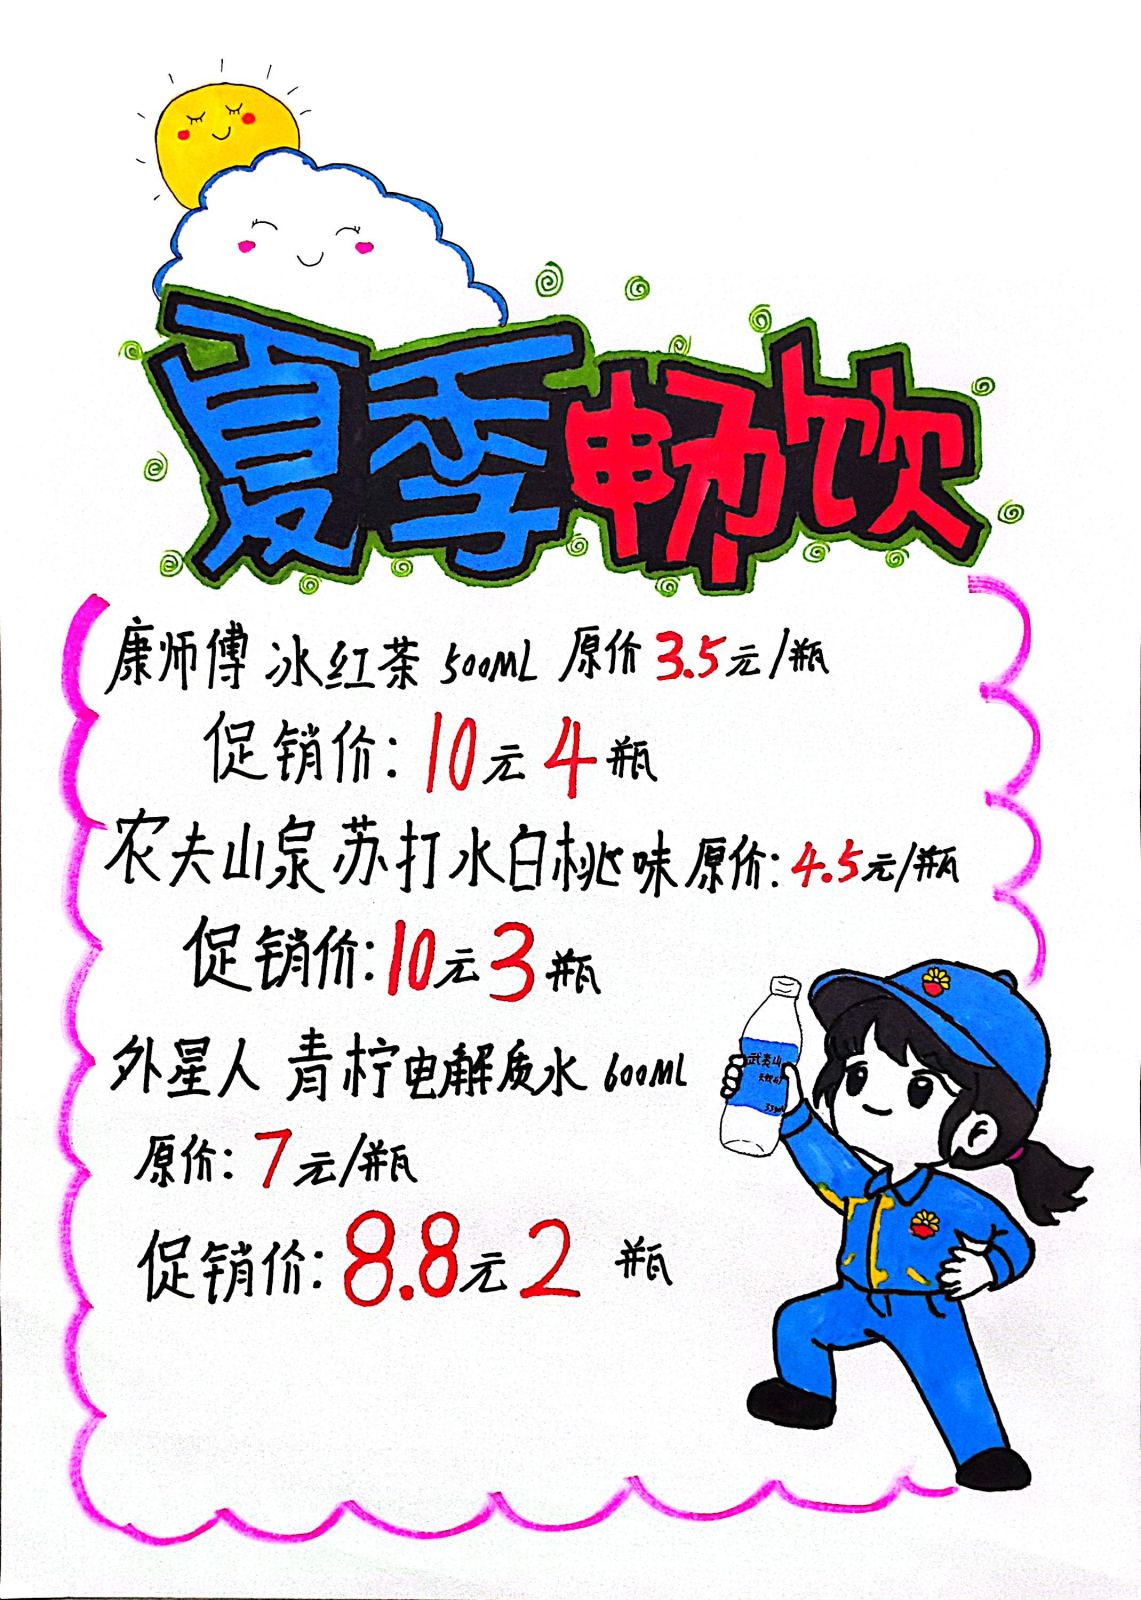 夏季畅饮
康师傅 冰红茶 500ML 原价 3.5元/瓶
促销价: 10元 4瓶
农夫山泉 苏打水白桃味 原价: 4.5元/瓶
促销价: 10元 3瓶
外星人 青柠电解质水 600ML
原价: 7元/瓶
促销价: 8.8元 2 瓶
武夷山